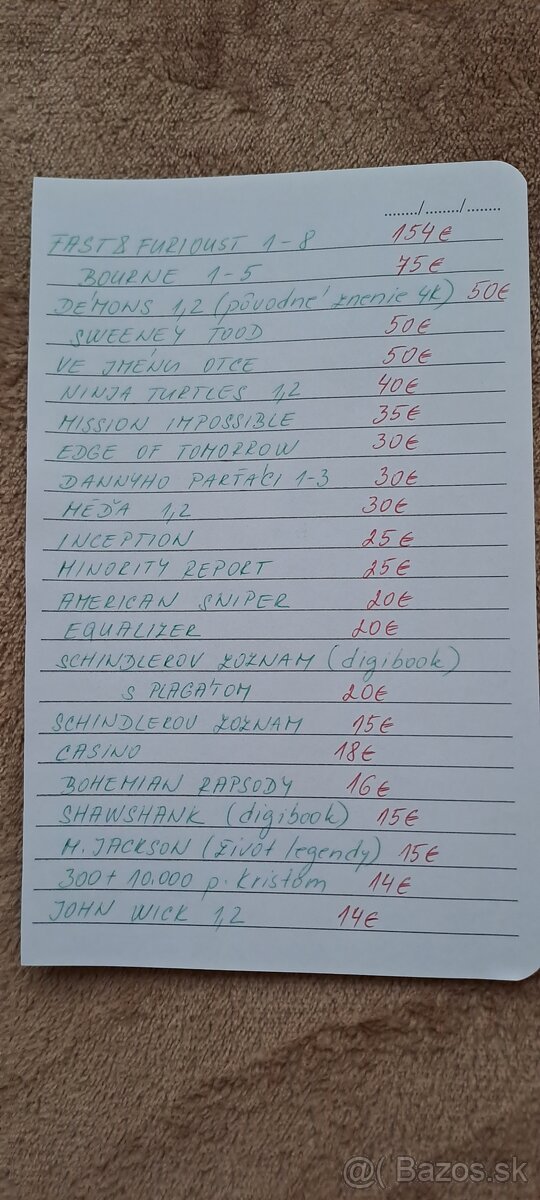 ......../......../........
FAST & FURIOUST 1-8 154€
BOURNE 1-5 75€
DÉMONS 1,2 (pôvodné znenie 4k) 50€
SWEENEY TODD 50€
VE JMÉNU OTCE 50€
NINJA TURTLES 1,2 40€
MISSION IMPOSSIBLE 35€
EDGE OF TOMORROW 30€
DANNYHO PARŤÁCI 1-3 30€
MÉĎA 1,2 30€
INCEPTION 25€
MINORITY REPORT 25€
AMERICAN SNIPER 20€
EQUALIZER 20€
SCHINDLEROV ZOZNAM (digibook)
S PLAGÁTOM 20€
SCHINDLEROV ZOZNAM 15€
CASINO 18€
BOHEMIAN RAPSODY 16€
SHAWSHANK (digibook) 15€
M. JACKSON (život legendy) 15€
300 + 10.000 p. kristom 14€
JOHN WICK 1,2 14€
@( Bazos.sk